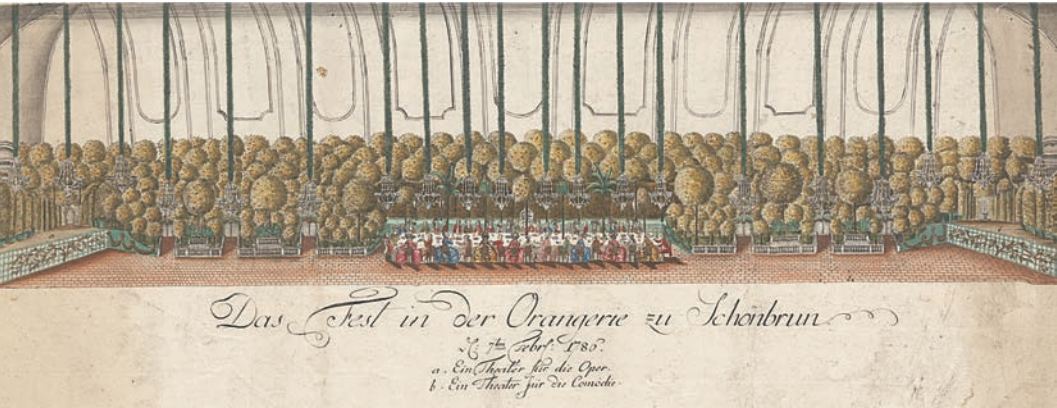 Das Fest in der Orangerie zu Schönbrun
7ten Febr: 1786.
a. Ein Theater für die Oper.
b. Ein Theater für die Comödie.